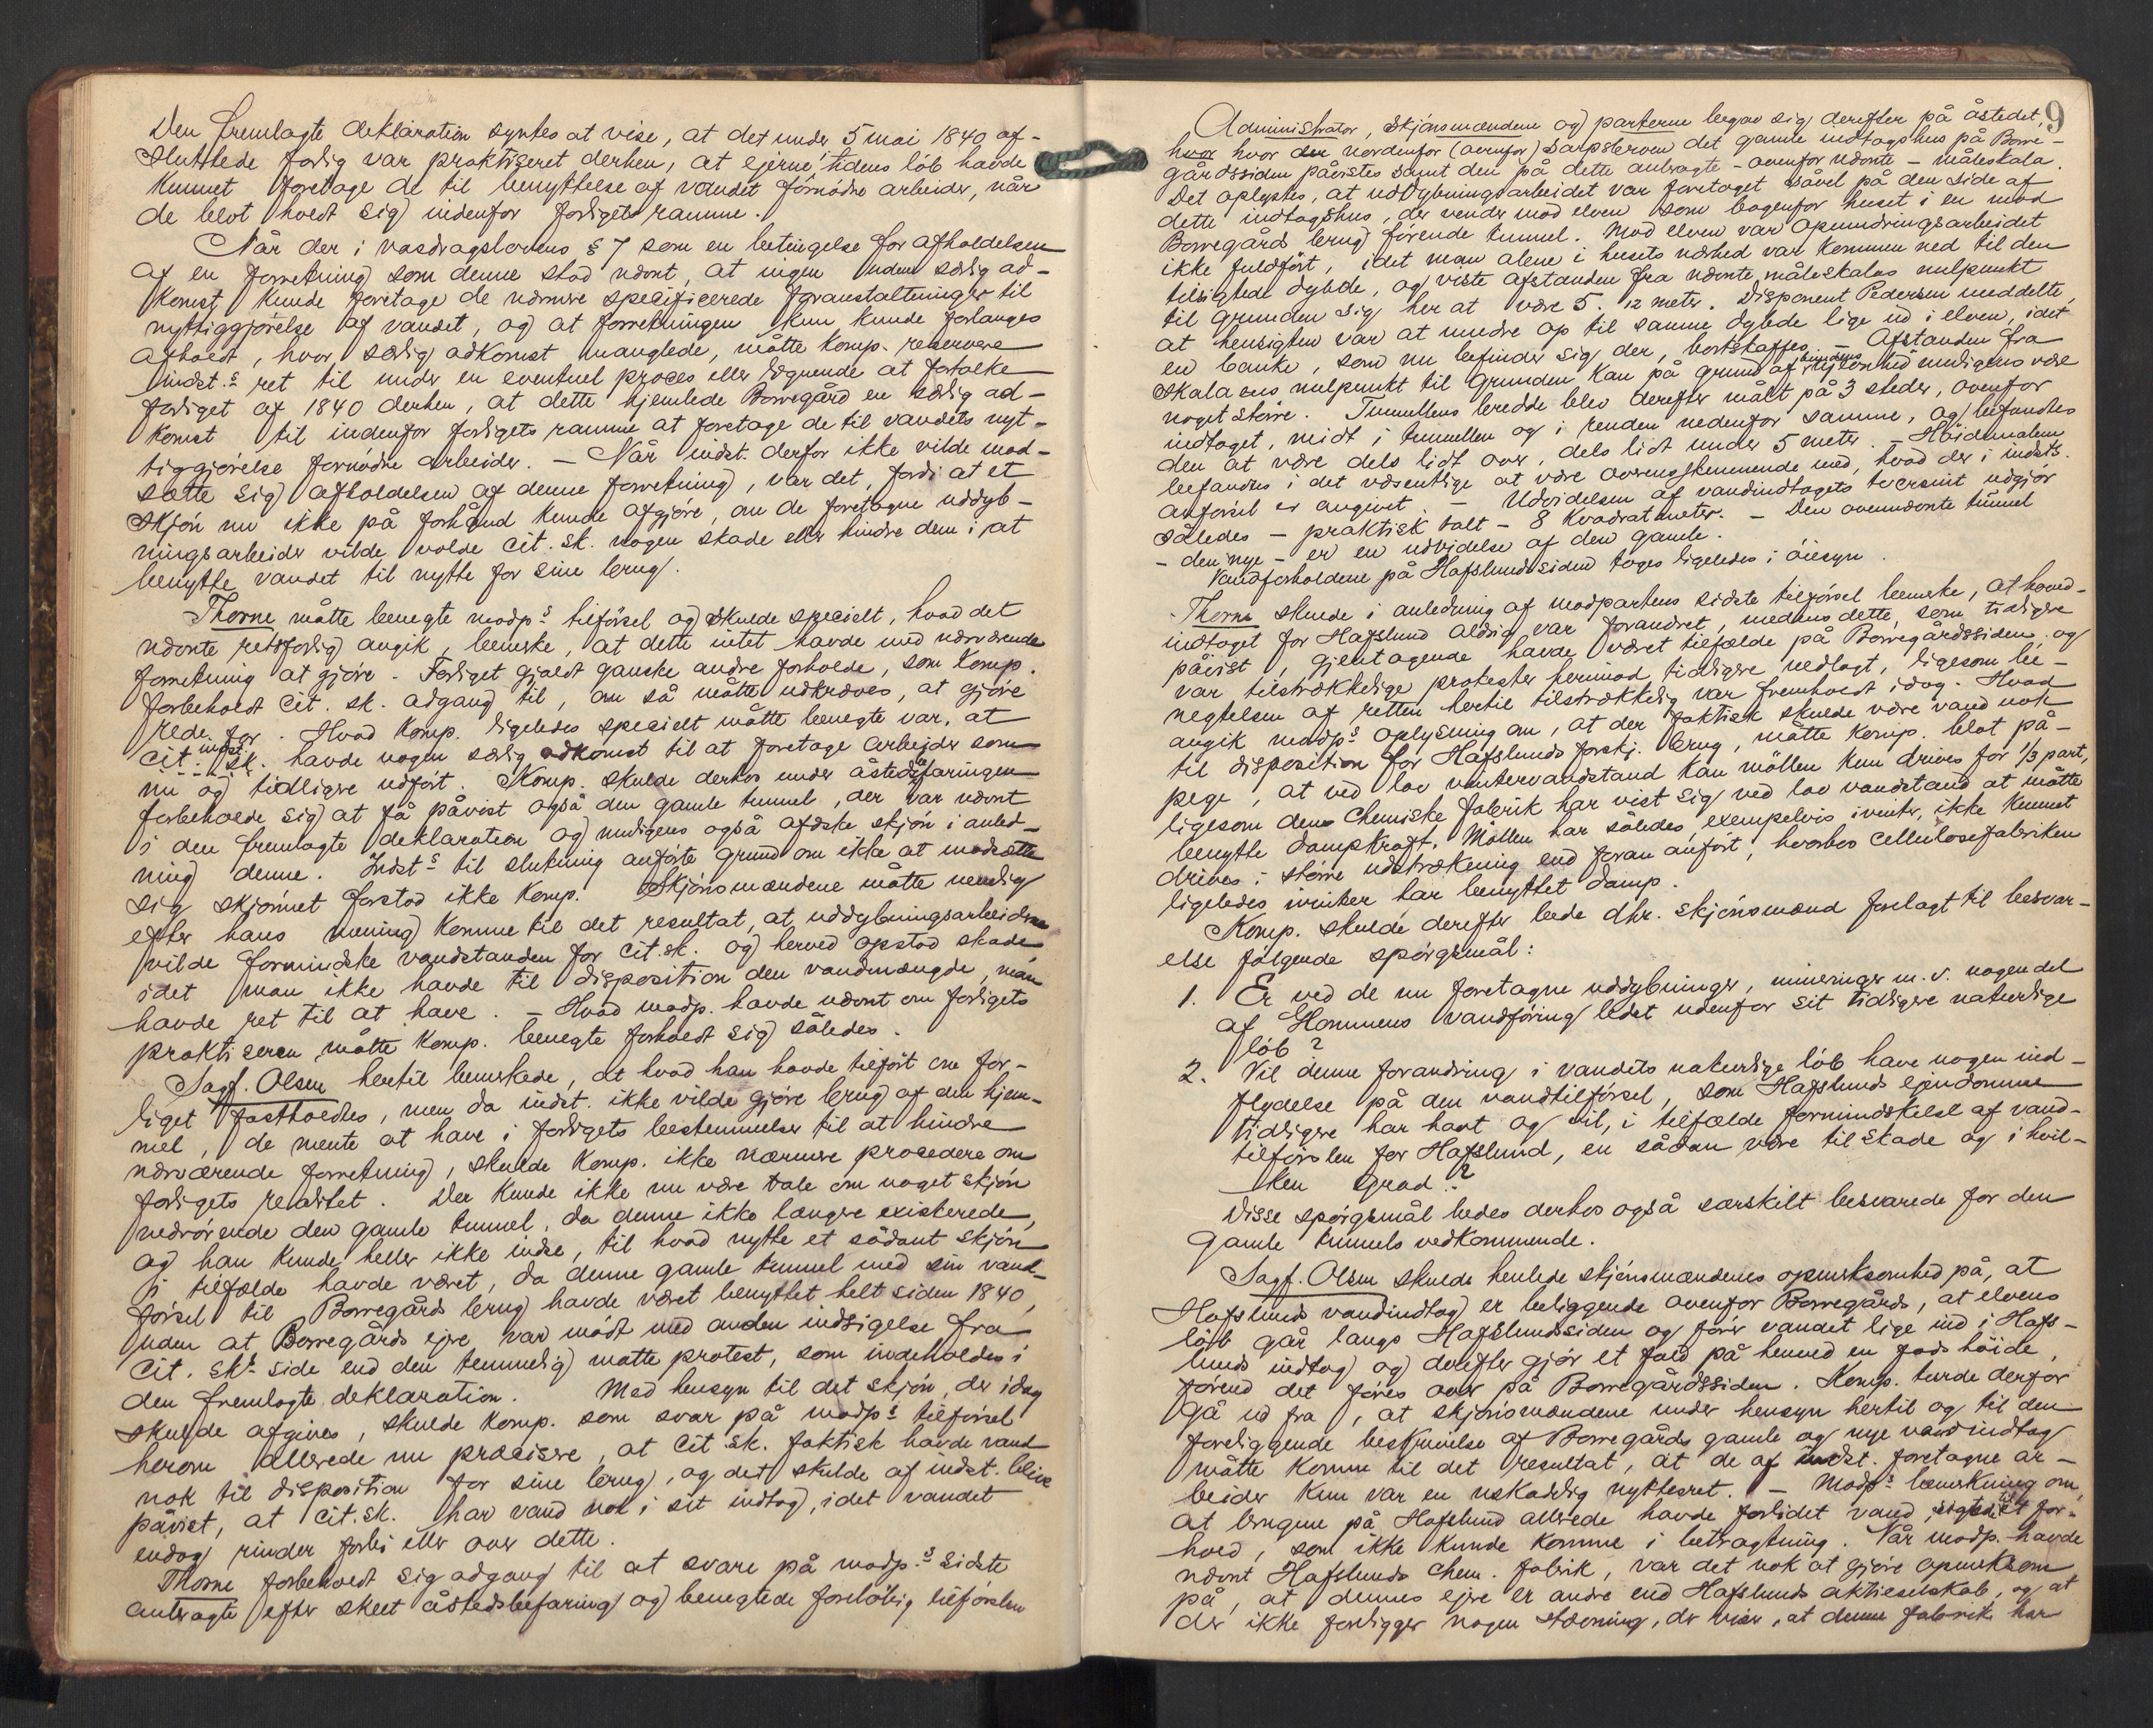 Den fremlagte deklaration syntes at vise, at det under 5 mai 1840 af-
sluttede forlig var praktiseret derhen, at ejerne i tidens løb havde
kunnet foretage de til benyttelse af vandet fornødne arbeider, når
de blot holdt sig indenfor forligets ramme.
Når der i vasdragslovens § 7 som en betingelse for afholdelsen
af en forretning som denne stod nævnt, at ingen uden særlig ad-
komst kunde foretage de nærmere specificerede foranstaltninger til
nyttiggjørelse af vandet, og at forretningen kun kunde forlanges
afholdt, hvor særlig adkomst manglede, måtte komp. reservere
indst.s ret til under en eventuel proces eller lignende at fortolke
forliget af 1840 derhen, at dette hjemlede Borregård en særlig ad-
komst til indenfor forligets ramme at foretage de til vandets nyt-
tiggjørelse fornødne arbeider. – Når indst. derfor ikke vilde mod-
sætte sig afholdelsen af denne forretning, var det, fordi at et
skjøn nu ikke på forhånd kunde afgjøre, om de foretagne uddyb-
ningsarbeider vilde volde cit. sk. nogen skade eller hindre dem i at
benytte vandet til nytte for sine brug.
Thorne måtte benegte modp.s tilførsel og skulde specielt, hvad det
nævnte retsforlig angik, bemerke, at dette intet havde med nærværende
forretning at gjøre. Forliget gjaldt ganske andre forholde, som komp.
forbeholdt cit. sk. adgang til, om så måtte udkræves, at gjøre
rede for. Hvad komp. ligeledes specielt måtte benegte var, at
cit. sk. indst. havde nogen særlig adkomst til at foretage arbejder som
nu og tidligere udført. Komp. skulde derhos under åstedsbefaringen
forbeholde sig at få påvist også den gamle tunnel, der var nævnt
i den fremlagte deklaration og muligens også afæske skjøn i anled-
ning denne. Indst.s til slutning anførte grund om ikke at modsætte
sig skjønnet forstod ikke komp. Skjønsmændene måtte nemlig
efter hans mening komme til det resultat, at uddybningsarbeiderne
vilde formindske vandstanden for cit. sk. og herved opstod skade
idet man ikke havde til disposition den vandmængde, man
havde ret til at have. – Hvad modp. havde nævnt om forligets
praktiseren måtte komp. benegte forholdt sig således.
Sagf. Olsen hertil bemerkede, at hvad han havde tilført om for-
liget fastholdtes, men da indst. ikke vilde gjøre brug af den hjem-
mel, de mente at have i forligets bestemmelser til at hindre
nærværende forretning, skulde komp. ikke nærmere procedere om
forligets realitet. Der kunde ikke nu være tale om noget skjøn
vedrørende den gamle tunnel, da denne ikke længre existerede,
og han kunde heller ikke indse, til hvad nytte et sådant skjøn
i tilfælde havde været, da denne gamle tunnel med sin vand-
førsel til Borregårds brug havde været benyttet helt siden 1840,
uden at Borregårds ejere var mødt med anden indsigelse fra
cit. sk.s side end den temmelig matte protest, som indeholdes i
den fremlagte deklaration. Med hensyn til det skjøn, der idag
skulde afgives, skulde komp. som svar på modp.s tilførsel
herom allerede nu præcisere, at cit. sk. faktisk havde vand
nok til disposition for sine brug, og det skulde af indst. blive
påvist, at cit. sk. har vand nok i sit indtag, idet vandet
endog rinder forbi eller over dette.
Thorne forbeholdt sig adgang til at svare på modp.s sidste
antragte efter skeet åstedsbefaring og benegtede foreløbig tilførslen
9
Administrator, skjønsmændene og parterne begav sig derefter på åstedet,
hvor hvor der nordenfor (ovenfor) Sarpsbroen det gamle indtagshus på Borre-
gårdssiden påvistes samt den på dette anbragte – ovenfor nævnte – måleskala.
Det oplystes, at uddybningsarbeidet var foretaget såvel på den side af
dette indtagshus, der vender mod elven som bagenfor huset i en mod
Borregårds brug førende tunnel. Mod elven var opmudringsarbeidet
ikke fuldført, idet man alene i husets nærhed var kommen ned til den
tilsigtede dybde, og viste afstanden fra nævnte måleskalas nulpunkt
til grunden sig her at være 5.12 meter. Disponent Pedersen meddelte,
at hensigten var at mudre op til samme dybde lige ud i elven, idet
en banke, som nu befinder sig der, bortskaffes. – Afstanden fra
skalaens nulpunkt til grunden kan på grund af bundens ujevnhed muligens være
noget større. Tunnellens bredde blev derefter målt på 3 steder, ovenfor
indtaget, midt i tunnellen og i renden nedenfor samme, og befandtes
den at være dels lidt over, dels lidt under 5 meter. – Høidemålene
befandtes i det væsentlige at være overensstemmende med, hvad der i indsts.
anførsel er angivet. – Udvidelsen af vandindtagets tversnit udgjør
således – praktisk talt – 8 kvadratmeter. – Den ovennævnte tunnel
– den nye – er en udvidelse af den gamle.
Vandforholdene på Hafslundssiden toges ligeledes i øiesyn.
Thorne skulde i anledning af modpartens sidste tilførsel bemerke, at hoved-
indtaget for Hafslund aldrig var forandret, medens dette, som tidligere
påvist, gjentagende havde været tilfælde på Borregårdssiden, og
var tilstrækkelige protester herimod tidligere nedlagt, ligesom be-
negtelsen af retten hertil tilstrækkelig var fremholdt idag. Hvad
angik modp.s oplysning om, at der faktisk skulde være vand nok
til disposition for Hafslunds forskj. brug, måtte komp. blot på-
pege, at ved lav vintervandstand kan møllen kun drives for 1/3 part,
ligesom den chemiske fabrik har vist sig ved lav vandstand at måtte
benytte dampkraft. Møllen har således exempelvis ivinter, ikke kunnet
drives i større udstrækning end foran anført, hvorhos cellulosefabriken
ligeledes ivinter har benyttet damp.
Komp. skulde derefter bede dhr. skjønsmænd forelagt til besvar-
else følgende spørgsmål:
1. Er ved de nu foretagne uddybninger, mineringer m.v. nogen del
af Glommens vandføring ledet udenfor sit tidligere naturlige
løb?
2. Vil denne forandring i vandets naturlige løb have nogen ind-
flydelse på den vandtilførsel, som Hafslunds ejendomme
tidligere har havt og vil, i tilfælde formindskelse af vand-
tilførslen for Hafslund, en sådan være til skade og i hvil-
ken grad?
Disse spørgsmål bedes derhos også særskilt besvarede for den
gamle tunnels vedkommende.
Sagf. Olsen skulde henlede skjønsmændenes opmerksomhed på, at
Hafslunds vandindtag er beliggende ovenfor Borregårds, at elvens
løb går langs Hafslundssiden og fører vandet lige ind i Hafs-
lunds indtag og derefter gjør et fald på henved en fods høide,
førend det føres over på Borregårdssiden. Komp. turde derfor
gå ud fra, at skjønsmændene under hensyn hertil og til den
foreliggende beskrivelse af Borregårds gamle og nye vandindtag
måtte komme til det resultat, at de af indst. foretagne ar-
beider kun var en uskadelig nytteret. – Modp.s bemerkning om,
at brugene på Hafslund allerede havde forlidet vand, for-
hold, som ikke kunde komme i betragtning. Når modp. havde
nævnt Hafslunds chem. fabrik, var det nok at gjøre opmerksom
på, at dennes ejere er andre end Hafslunds aktieselskab, og at
der ikke foreligger nogen stævning, der viser, at denne fabrik har